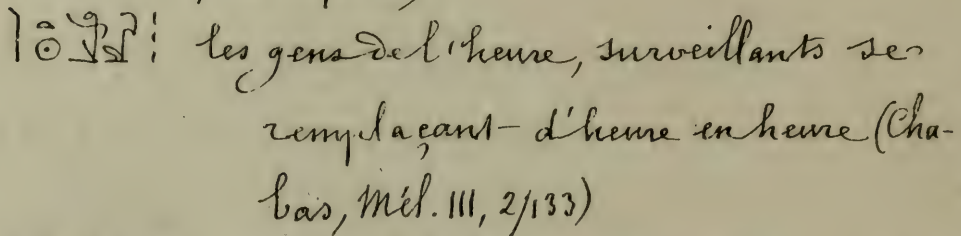 les gens de l'heure, surveillants se
remplaçant d'heure en heure (Cha-
bas, Mél. III, 2/133)